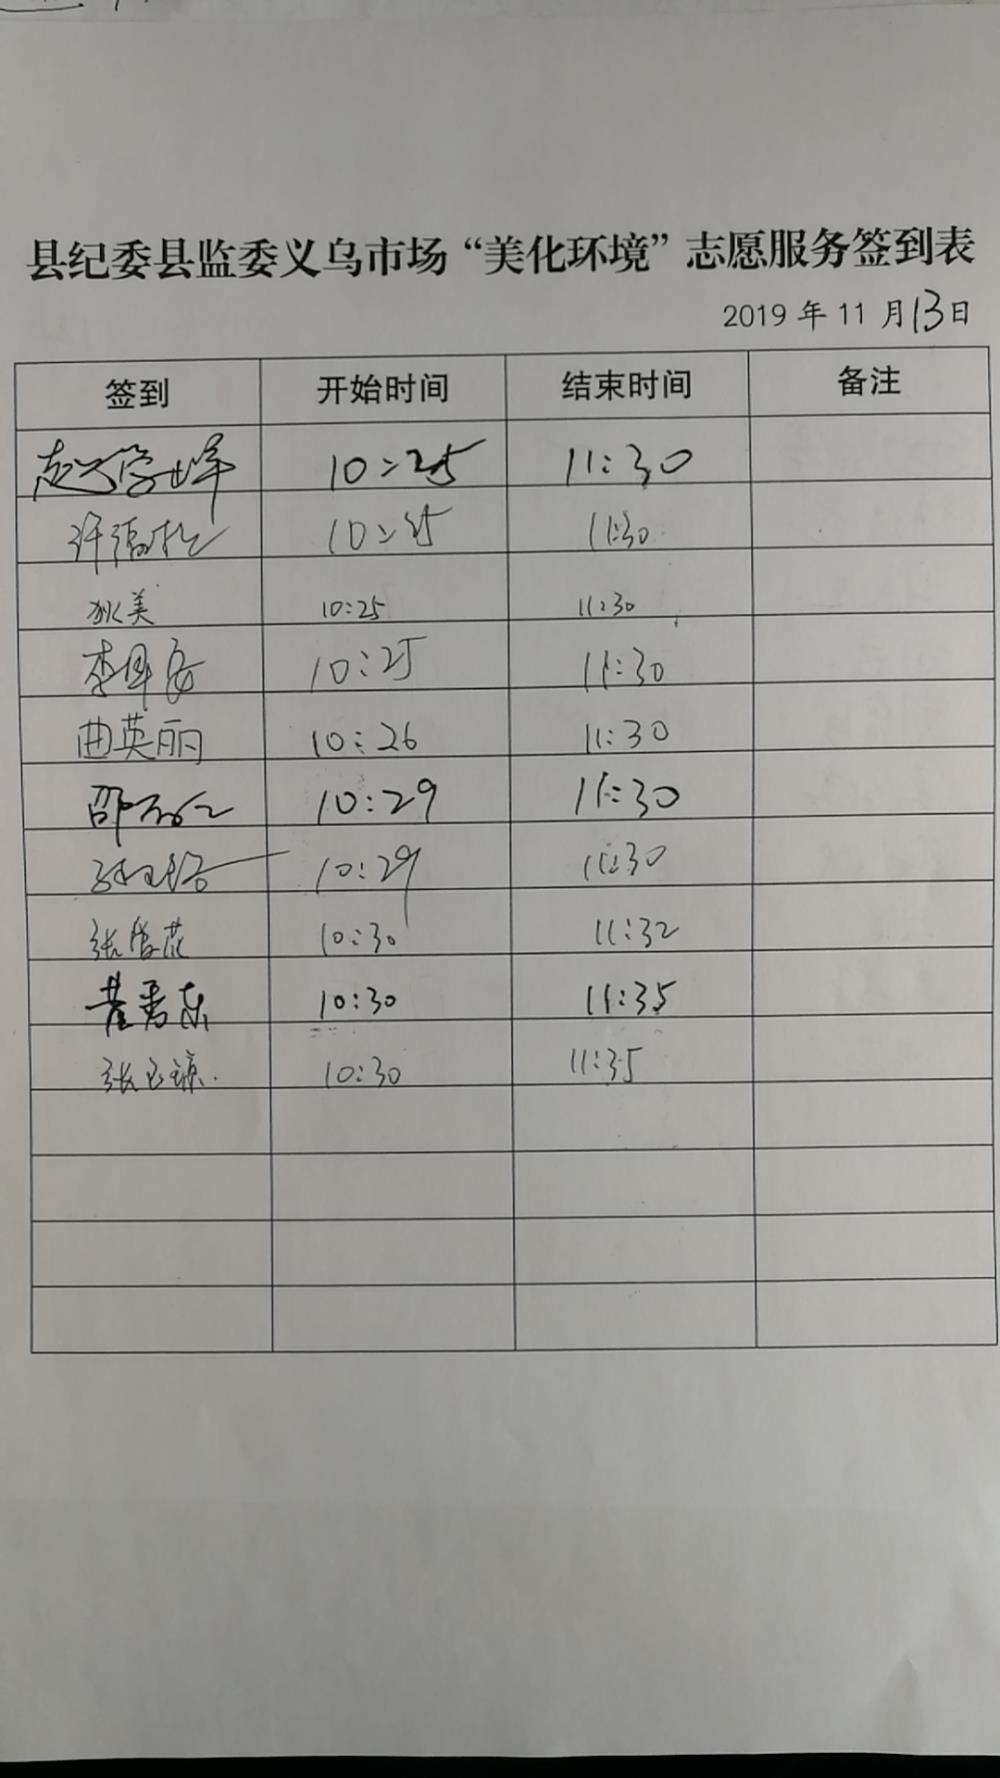 县纪委县监委义乌市场“美化环境”志愿服务签到表
2019 年 11 月13日
签到 开始时间 结束时间 备注
赵学峰 10:25 11:30
许 10:25 11:30
狄美 10:25 11:30
李 10:25 11:30
曲英丽 10:26 11:30
邵 10:29 11:30
10:29 11:30
张雪花 10:30 11:32
10:30 11:35
张玉琼 10:30 11:35